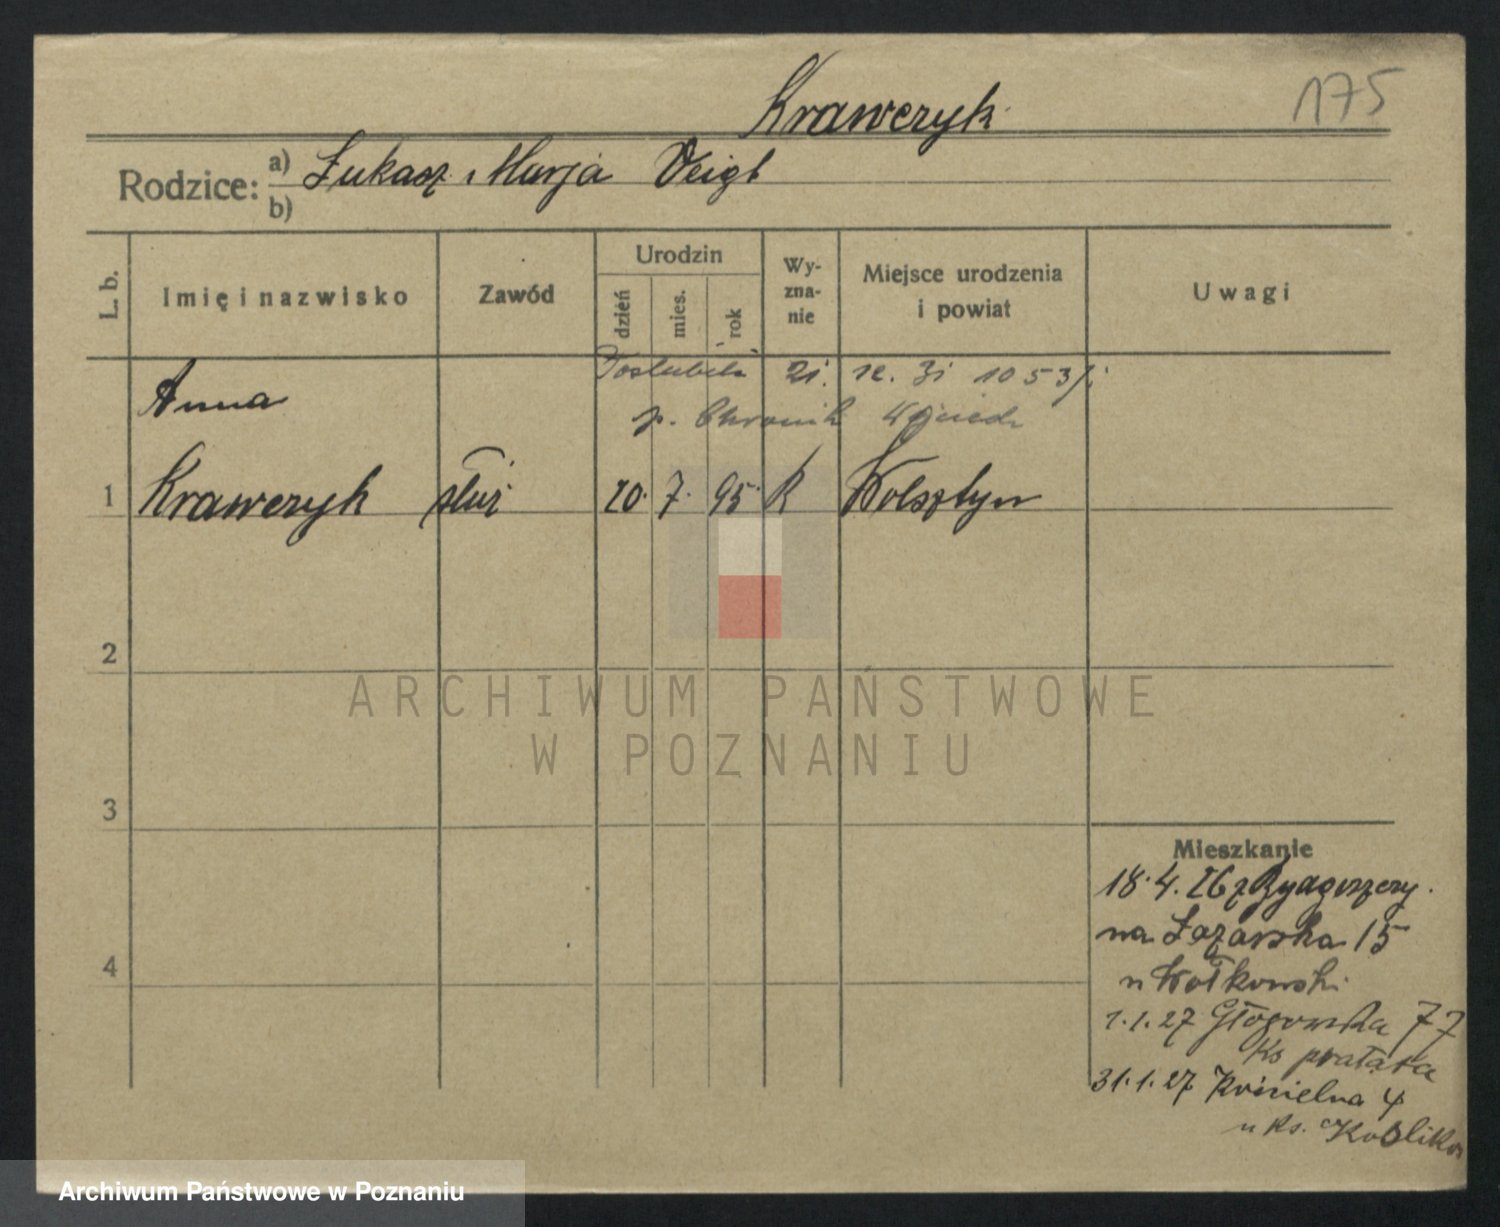 Krawczyk
175
Rodzice: a) Łukasz Marja Veigt
b)
L. b.
Imię i nazwisko
Zawód
Urodzin
dzień
mies.
rok
Wy-
zna-
nie
Miejsce urodzenia
i powiat
Uwagi
Poslubiła 21. 12. 31 1053/
p. Chronik
Anna
1 Krawczyk służ 20. 7. 95. R Wolsztyn
2
3
4
ARCHIWUM PAŃSTWOWE
W POZNANIU
Mieszkanie
18.4.26 z Bydgoszczy.
na Łazarska 15
u Wołkowski
1.1.27 Głogowska 77
Ks prałata
31.1.27 Kościelna 4
u Ks.
Archiwum Państwowe w Poznaniu